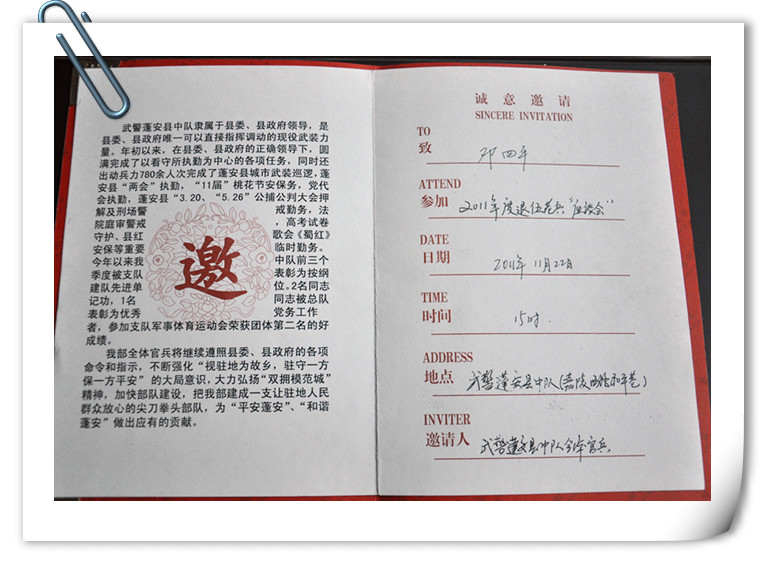 武警蓬安县中队隶属于县委、县政府领导，是
县委、县政府唯一可以直接指挥调动的现役武装力
量。年初以来，在县委、县政府的正确领导下，圆
满完成了以看守所执勤为中心的各项任务，同时还
出动兵力780余人次完成了蓬安县城市武装巡逻，蓬安
县“两会”执勤，“11届”桃花节安保务，党代
会执勤，蓬安县“3.20、“5.26”公捕公判大会押
解及刑场警戒勤务，法
院庭审警戒，高考试卷
守护、县红歌会《蜀红》
安保等重要临时勤务。
今年以来我中队前三个
季度被支队表彰为按纲
建队先进单位。2名同志
记功，1名同志被总队
表彰为优秀党务工作
者，参加支队军事体育运动会荣获团体第二名的好
成绩。
我部全体官兵将继续遵照县委、县政府的各项
命令和指示，不断强化“视驻地为故乡，驻守一方
保一方平安”的大局意识，大力弘扬“双拥模范城”
精神，加快部队建设，把我部建成一支让驻地人民
群众放心的尖刀拳头部队，为“平安蓬安”、“和谐
蓬安”做出应有的贡献。
邀
诚意邀请
SINCERE INVITATION
TO
致 邓四平
ATTEND
参加 2011年度退伍老兵“座谈会”
DATE
日期 2011年11月22日
TIME
时间 15时
ADDRESS
地点 武警蓬安县中队(嘉陵路和平巷)
INVITER
邀请人 武警蓬安县中队全体官兵